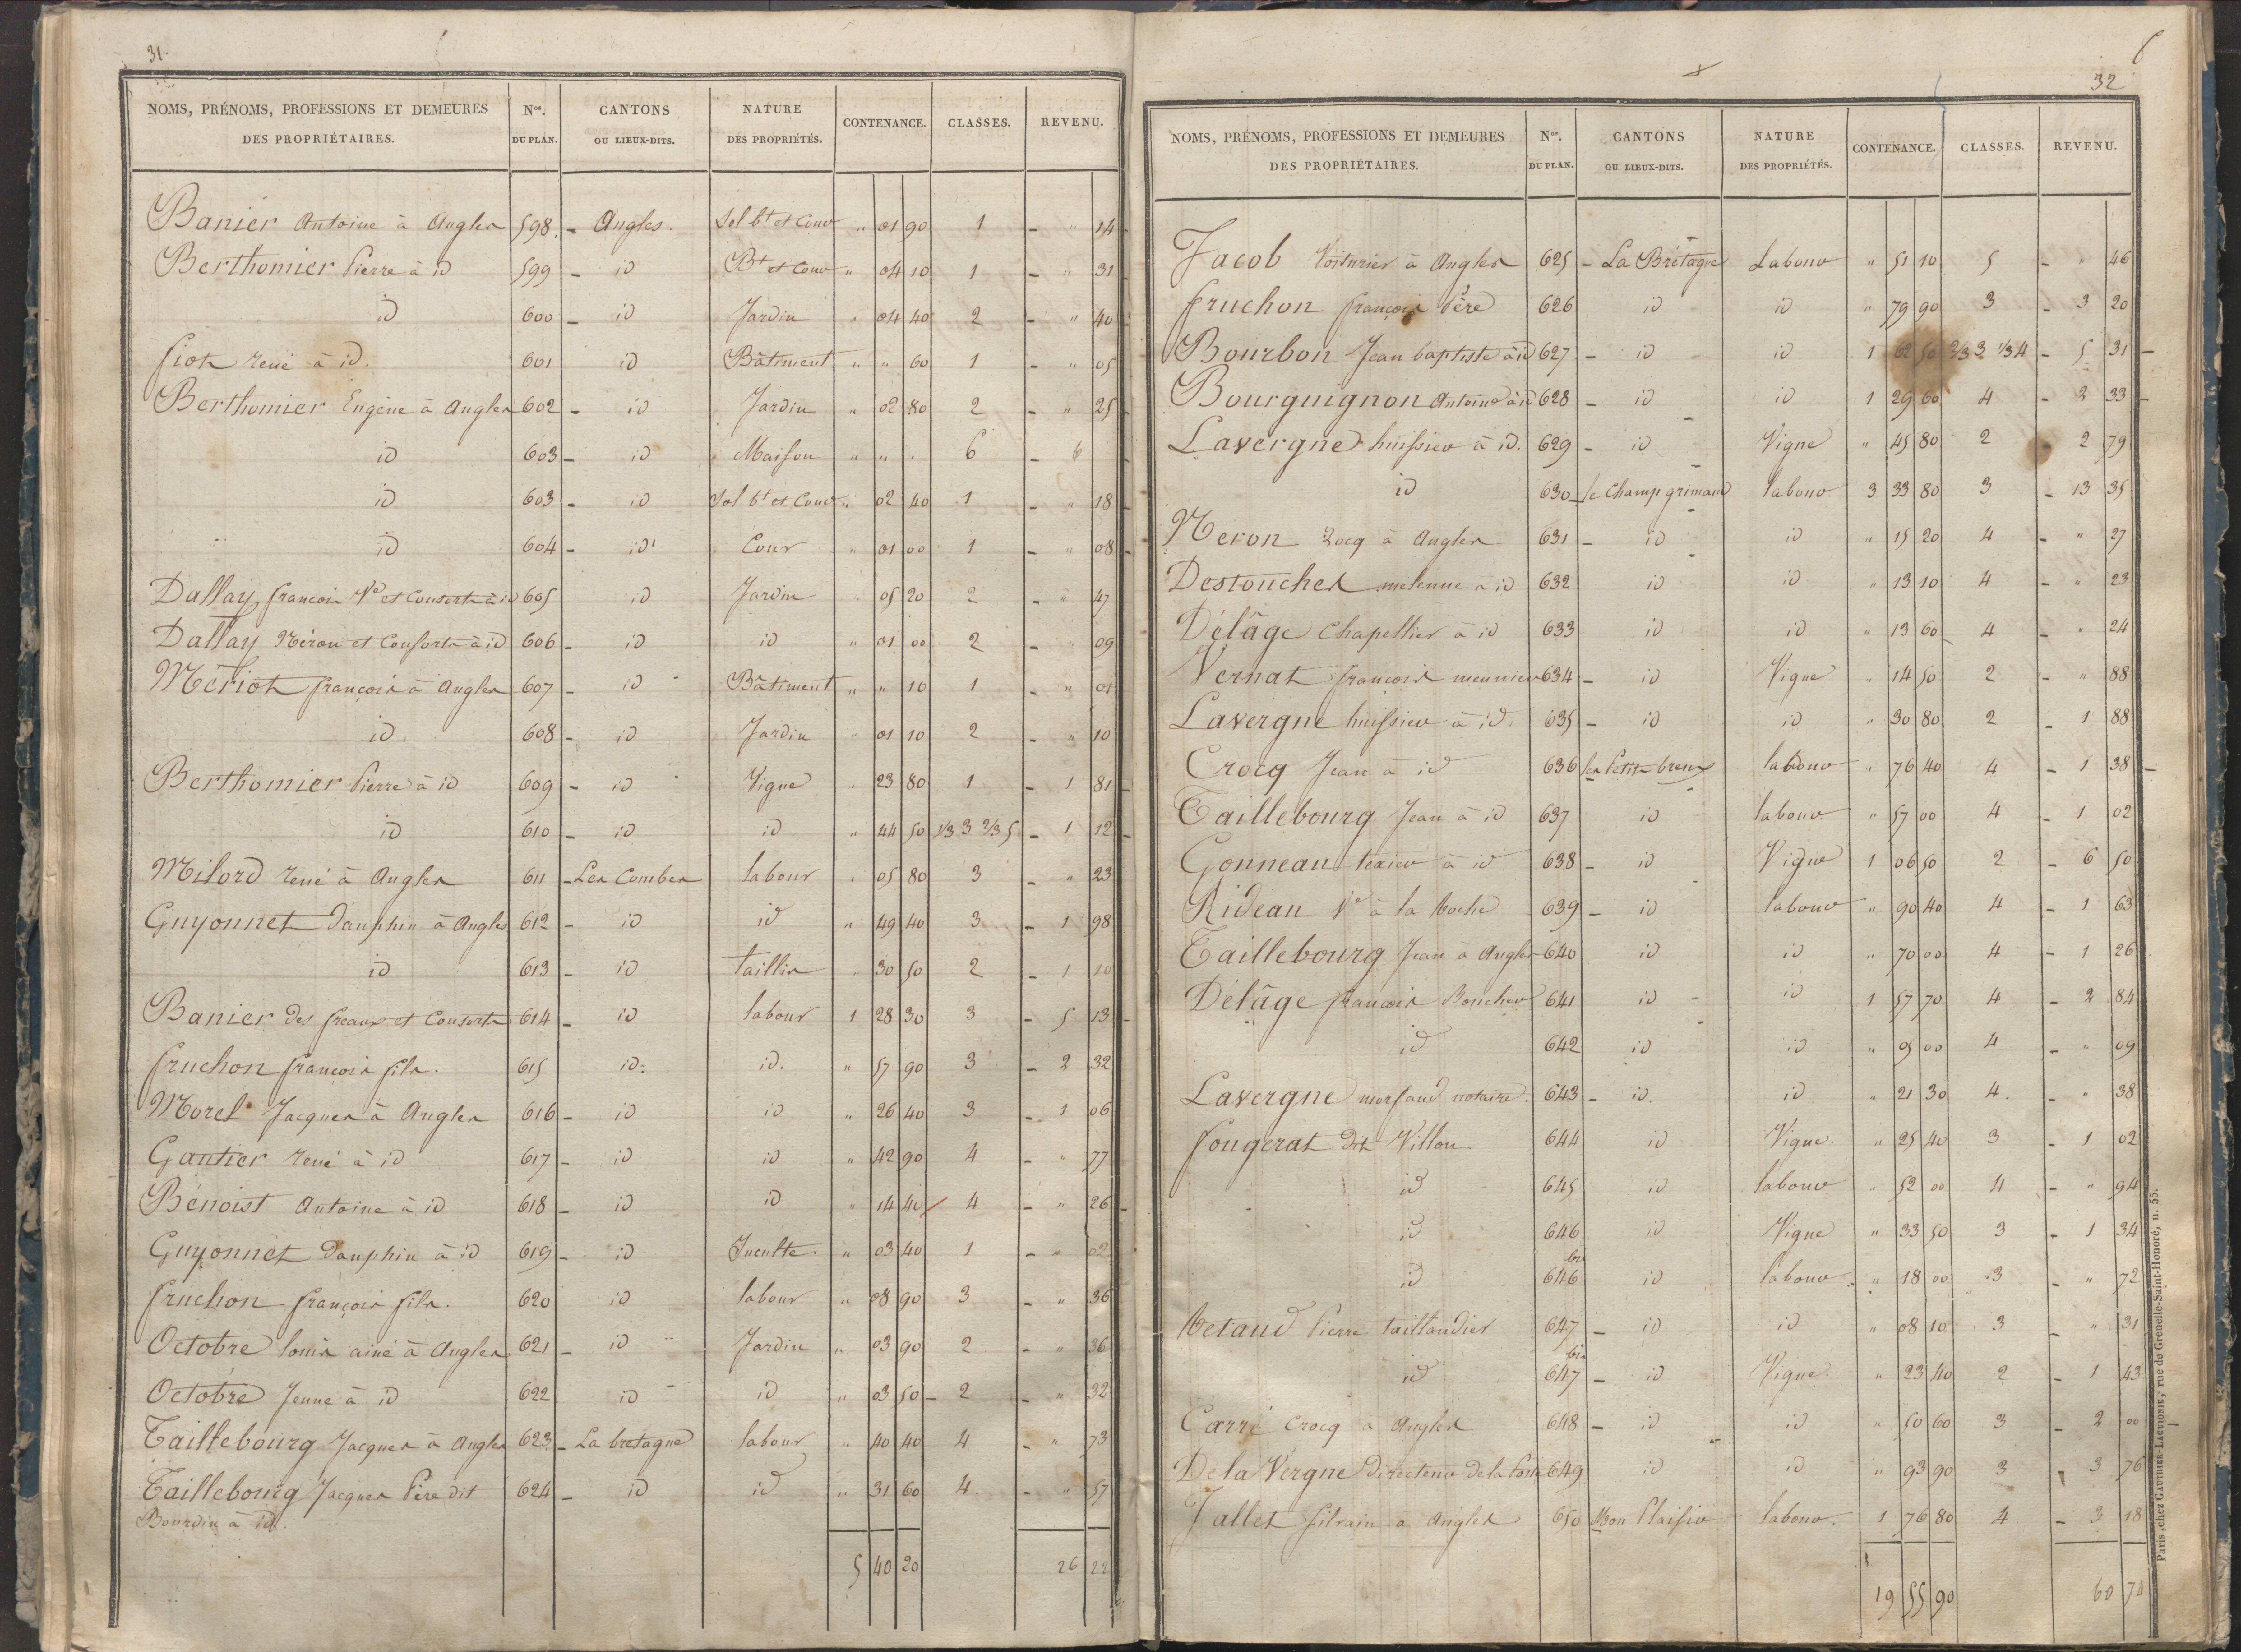 31.
NOMS, PRÉNOMS, PROFESSIONS ET DEMEURES DES PROPRIÉTAIRES. Nos. DU PLAN. CANTONS OU LIEUX-DITS. NATURE DES PROPRIÉTÉS. CONTENANCE. CLASSES. REVENU.
Banier Antoine à Angles 598. - Angles. Sol bt et Cour " 01 90 1 - " 14
Berthomier Pierre à id 599 - id Bt et Cour " 04 10 1 - " 31
id 600 - id Jardin " 04 40 2 - " 40
fiot René à id. 601 id Bâtiment " " 60 1 - " 05
Berthomier Eugène à Angles 602 - id Jardin " 02 80 2 - " 25
id 603 - id Maison " " " 6 - 6
id 603 - id Sol bt et Cour " 02 40 1 - " 18
id 604 - id Cour " 01 00 1 - " 08
Dallay, francois Ve et Consorts à id 605 id Jardin " 05 20 2 - " 47
Dallay Néron et Consorts à id 606 - id id " 01 00 2 - " 09
Mériot françois à Angles 607 - id Bâtiment " " 10 1 - " 01
id 608 - id Jardin " 01 10 2 - " 10
Berthomier Pierre à id 609 - id Vigne " 23 80 1 - 1 81
id 610 - id id " 44 50 1/3 3 2/3 5 - 1 12
Milord René à Angles 611 - Les Combes labour " 05 80 3 - " 23
Guyonnet Dauphin à Angles 612 - id id " 49 40 3 - 1 98
id 613 - id taillis " 30 50 2 - 1 10
Banier des freaux et Consorts 614 - id labour 1 28 30 3 - 5 13
fruchon françois fils. 615 id. id. " 57 90 3 - 2 32
Morel Jacques à Angles 616 - id id " 26 40 3 - 1 06
Gautier René à id 617 - id id " 42 90 4 - " 77
Bénoist Antoine à id 618 - id id " 14 40 4 - " 26
Guyonnet Dauphin à id 619 - id Inculte " 03 40 1 - " 02
fruchon françois fils. 620 id labour " 08 90 3 - " 36
Octobre louis ainé à Angles 621 - id Jardin " 03 90 2 - " 36
Octobre Jeune à id 622 id id " 03 50 - 2 - " 32
Taillebourg Jacques à Angles 623 - La bretagne labour " 40 40 4 - " 73
Taillebourg Jacques Père dit 624 - id id " 31 60 4. - " 57
Bourdin à id.
5 40 20 26 22
32
NOMS, PRÉNOMS, PROFESSIONS ET DEMEURES DES PROPRIÉTAIRES. Nos. DU PLAN. CANTONS OU LIEUX-DITS. NATURE DES PROPRIÉTÉS. CONTENANCE. CLASSES. REVENU.
Jacob Voiturier à Angles 625 - La Brétagne Labour " 51 10 5 - " 46
fruchon françois Père 626 id id " 79 90 3 - 3 20
Bourbon Jean baptiste à id 627 - id id 1 62 50 2/3 3 1/3 4 - 5 31
Bourguignon Antoine à id 628 - id id 1 29 60 4 - 2 33
Lavergne huissier à id. 629 - id Vigne " 45 80 2 2 79
id 630 - le Champ grimaud labour 3 33 80 3 - 13 35
Neron Rocq à Angles 631 - id id " 15 20 4 - " 27
Destouches à id 632 id id " 13 10 4 - " 23
Délâge Chapellier à id 633 id id " 13 60 4 - " 24
Vernat françois meunier 634 - id Vigne " 14 50 2 - " 88
Lavergne huissier à id. 635 - id id " 30 80 2 - 1 88
Crocq Jean à id 636 les Petits breux labour " 76 40 4 - 1 38
Taillebourg Jean à id 637 id labour " 57 00 4 - 1 02
Gonneau texier à id 638 - id Vigne 1 06 50 2 - 6 50
Rideau Ve à la Roche 639 - id labour " 90 40 4 - 1 63
Taillebourg Jean à Angles 640 id id " 70 00 4 - 1 26
Délâge françois Boucher 641 id id 1 57 70 4 - 2 84
id 642 id id " 05 00 4 - " 09
Lavergne morfaud notaire. 643 - id. id " 21 30 4. - " 38
fougerat dit Villon. 644 id Vigne. " 25 40 3 - 1 02
id 645 id labour " 52 00 4 - " 94
id 646 id Vigne " 33 50 3 - 1 34
id 646 bis id labour " 18 00 3 - " 72
Vetaud Pierre taillandier 647 - id id " 08 10 3 - " 31
id 647 bis - id Vigne. " 23 40 2 - 1 43
Carré Crocq à Angles 648 - id id " 50 60 3 - 2 00
De la Vergne Directeur de la Poste 649 id id " 93 90 3 3 76
Jallet à Angles 650 Mon Plaisir labour. 1 76 80 4 - 3 18
19 55 90 60 74
Paris, chez GAUTHIER-LAGUIONIE, rue de Grenelle-Saint-Honoré, n. 55.